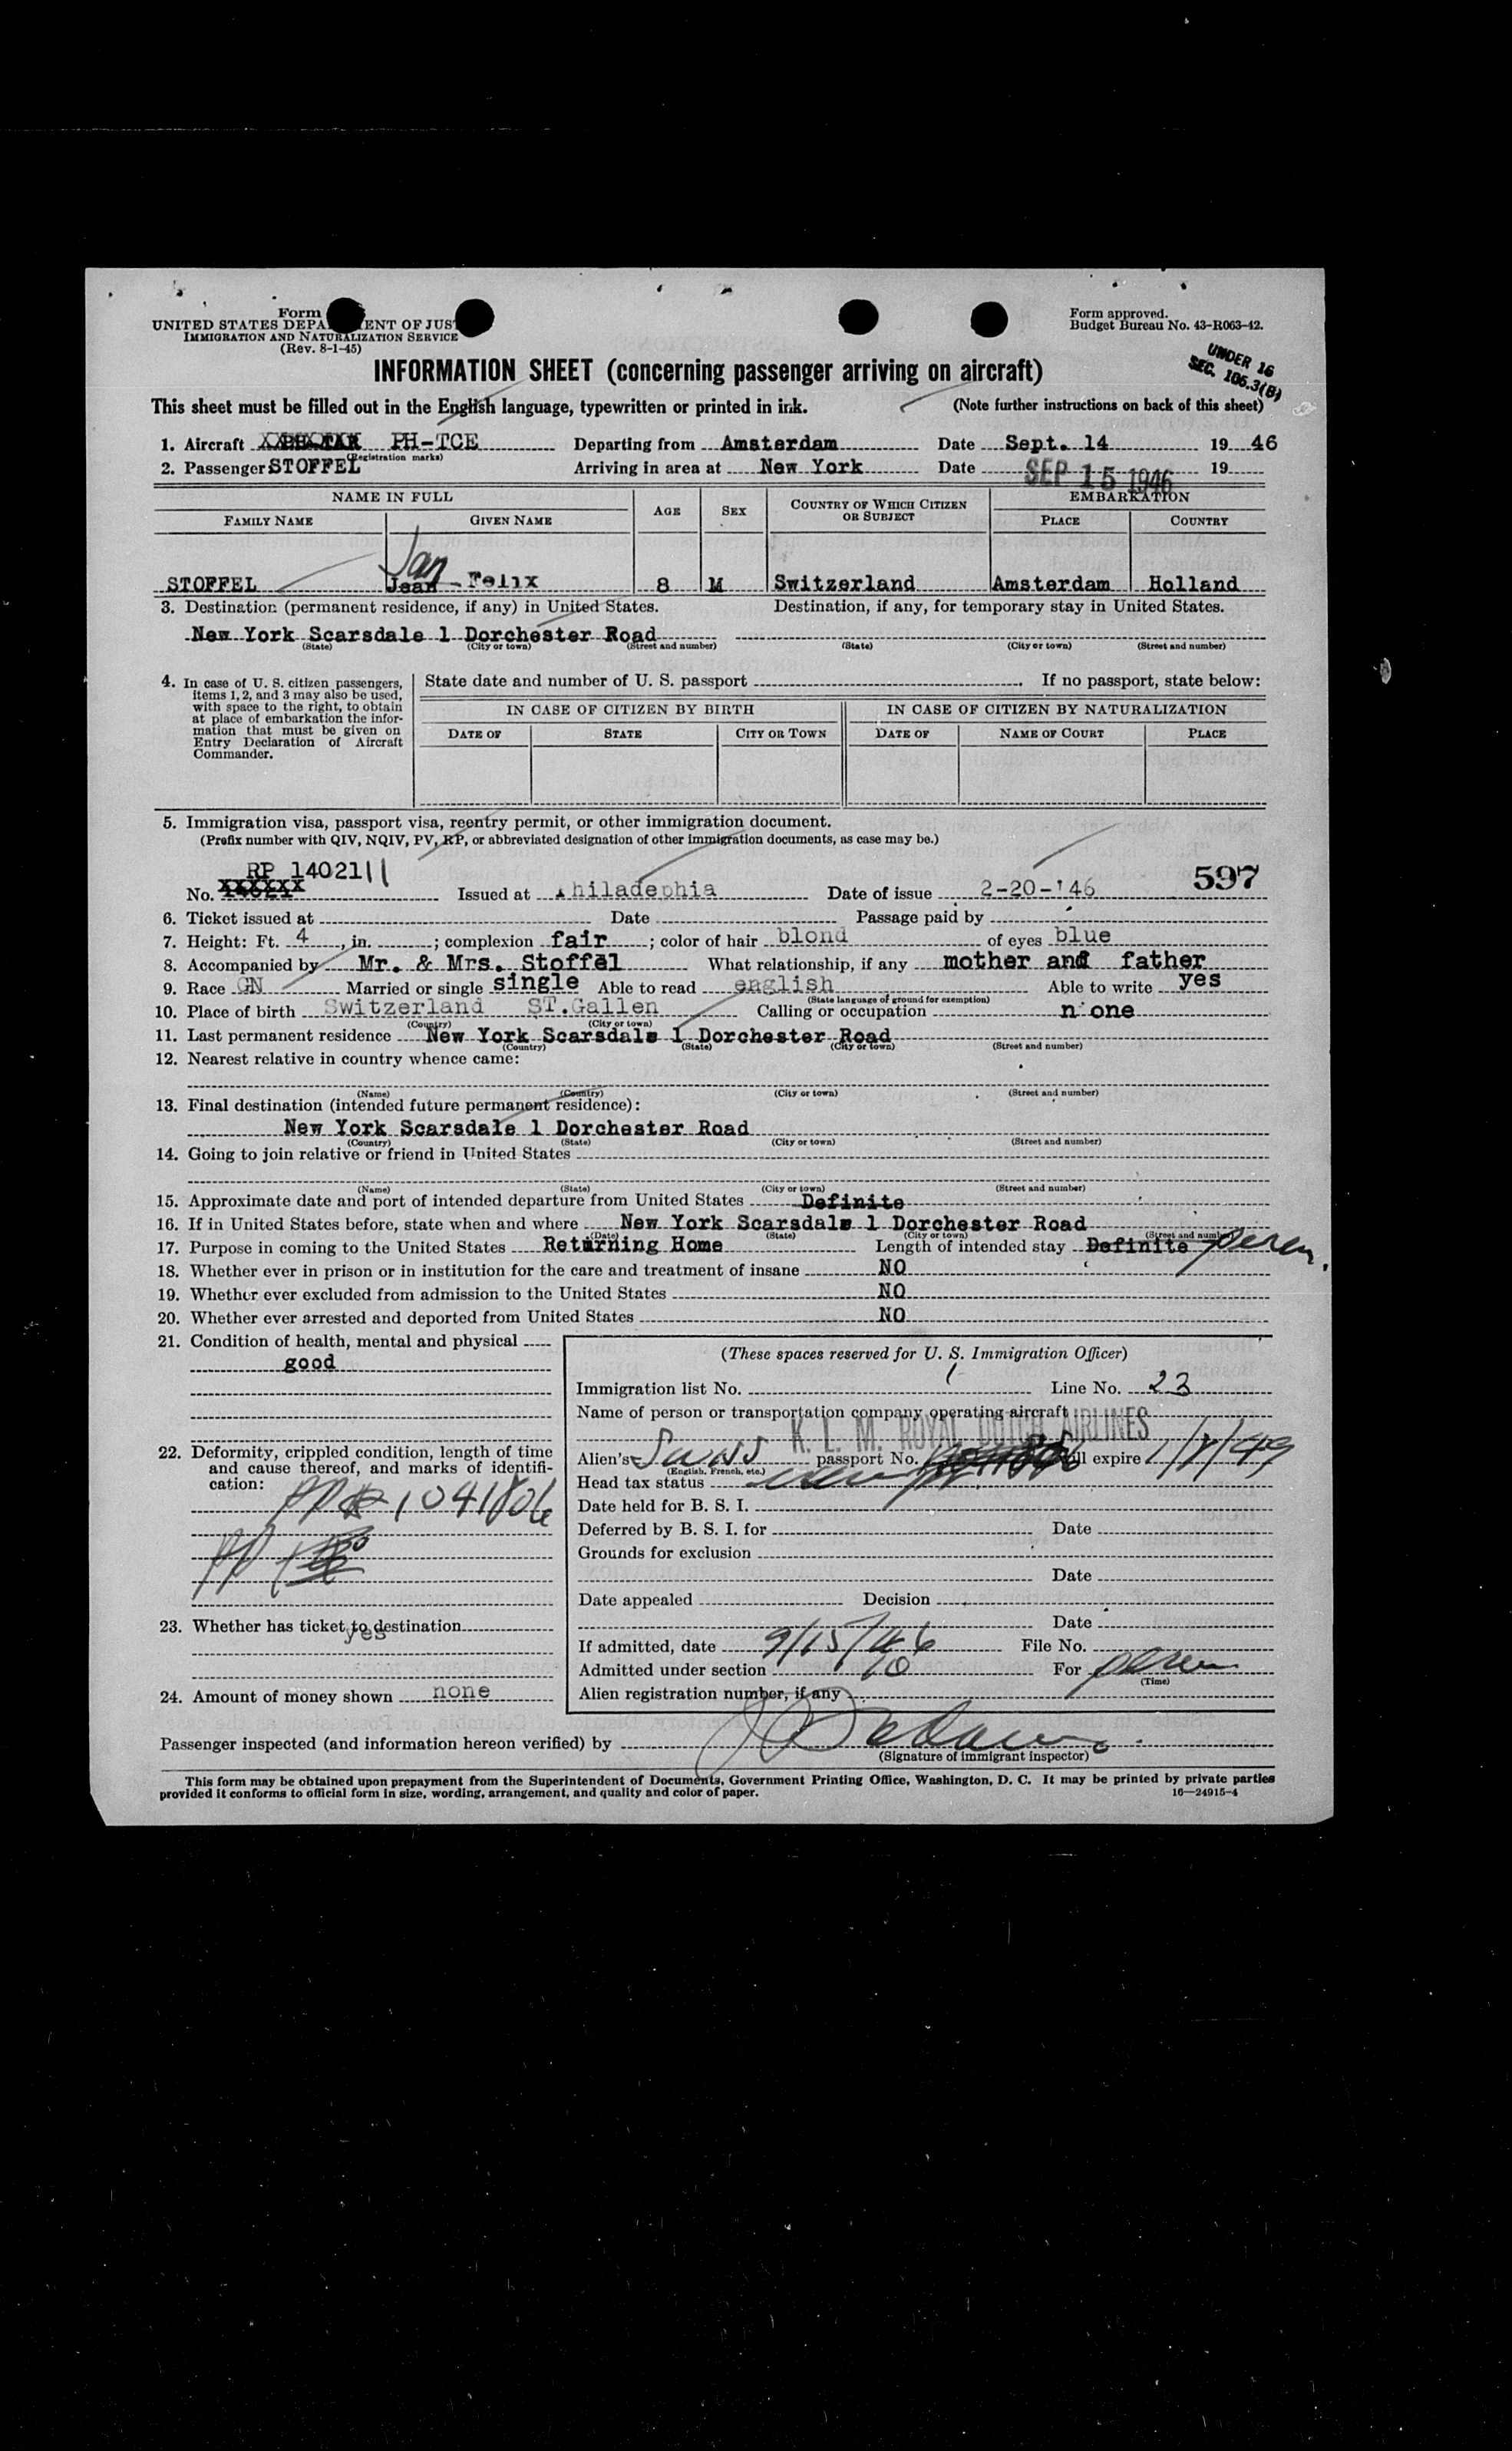 Form
UNITED STATES DEPA ENT OF JUS
IMMIGRATION AND NATURALIZATION SERVICE
(Rev. 8-1-45)
Form approved.
Budget Bureau No. 43-R063-42.
UNDER 16
SEC. 105.3(B)
INFORMATION SHEET (concerning passenger arriving on aircraft)
This sheet must be filled out in the English language, typewritten or printed in ink. (Note further instructions on back of this sheet)
1. Aircraft PH-TCE Departing from Amsterdam Date Sept. 14 19 46
(Registration marks)
2. Passenger STOFFEL Arriving in area at New York Date SEP 15 1946 19
NAME IN FULL AGE SEX COUNTRY OF WHICH CITIZEN OR SUBJECT EMBARKATION
FAMILY NAME GIVEN NAME PLACE COUNTRY
Jan
STOFFEL Jean - Felix 8 M Switzerland Amsterdam Holland
3. Destination (permanent residence, if any) in United States. Destination, if any, for temporary stay in United States.
New York Scarsdale 1 Dorchester Road
(State) (City or town) (Street and number) (State) (City or town) (Street and number)
4. In case of U. S. citizen passengers, items 1, 2, and 3 may also be used, with space to the right, to obtain at place of embarkation the information that must be given on Entry Declaration of Aircraft Commander.
State date and number of U. S. passport . If no passport, state below:
IN CASE OF CITIZEN BY BIRTH IN CASE OF CITIZEN BY NATURALIZATION
DATE OF STATE CITY OR TOWN DATE OF NAME OF COURT PLACE
5. Immigration visa, passport visa, reentry permit, or other immigration document.
(Prefix number with QIV, NQIV, PV, RP, or abbreviated designation of other immigration documents, as case may be.)
RP 1402111
597
No. Issued at hiladephia Date of issue 2-20-'46
6. Ticket issued at Date Passage paid by
7. Height: Ft. 4, in. ; complexion fair ; color of hair blond of eyes blue
8. Accompanied by Mr. & Mrs. Stoffel What relationship, if any mother and father
9. Race GN Married or single single Able to read english Able to write yes
(State language or ground for exemption)
10. Place of birth Switzerland ST.Gallen Calling or occupation none
(Country) (City or town)
11. Last permanent residence New York Scarsdale 1 Dorchester Road
(Country) (State) (City or town) (Street and number)
12. Nearest relative in country whence came:
(Name) (Country) (City or town) (Street and number)
13. Final destination (intended future permanent residence):
New York Scarsdale 1 Dorchester Road
(Country) (State) (City or town) (Street and number)
14. Going to join relative or friend in United States
(Name) (State) (City or town) (Street and number)
15. Approximate date and port of intended departure from United States Definite
16. If in United States before, state when and where New York Scarsdale 1 Dorchester Road
(Date) (State) (City or town) (Street and number)
17. Purpose in coming to the United States Returning Home Length of intended stay Definite perm.
18. Whether ever in prison or in institution for the care and treatment of insane NO
19. Whether ever excluded from admission to the United States NO
20. Whether ever arrested and deported from United States NO
21. Condition of health, mental and physical
good
22. Deformity, crippled condition, length of time and cause thereof, and marks of identification:
pp # 1041806
pp
23. Whether has ticket to destination
yes
24. Amount of money shown none
(These spaces reserved for U. S. Immigration Officer)
Immigration list No. 1 Line No. 23
Name of person or transportation company operating aircraft
K. L. M. ROYAL DUTCH AIRLINES
Alien's Swiss passport No. will expire 1/1/49
(English, French, etc.)
Head tax status
Date held for B. S. I.
Deferred by B. S. I. for Date
Grounds for exclusion
Date
Date appealed Decision
Date
If admitted, date 9/15/46 File No.
Admitted under section 10 For perm
(Time)
Alien registration number, if any
Passenger inspected (and information hereon verified) by
(Signature of immigrant inspector)
This form may be obtained upon prepayment from the Superintendent of Documents, Government Printing Office, Washington, D. C. It may be printed by private parties
provided it conforms to official form in size, wording, arrangement, and quality and color of paper. 16—24915-4